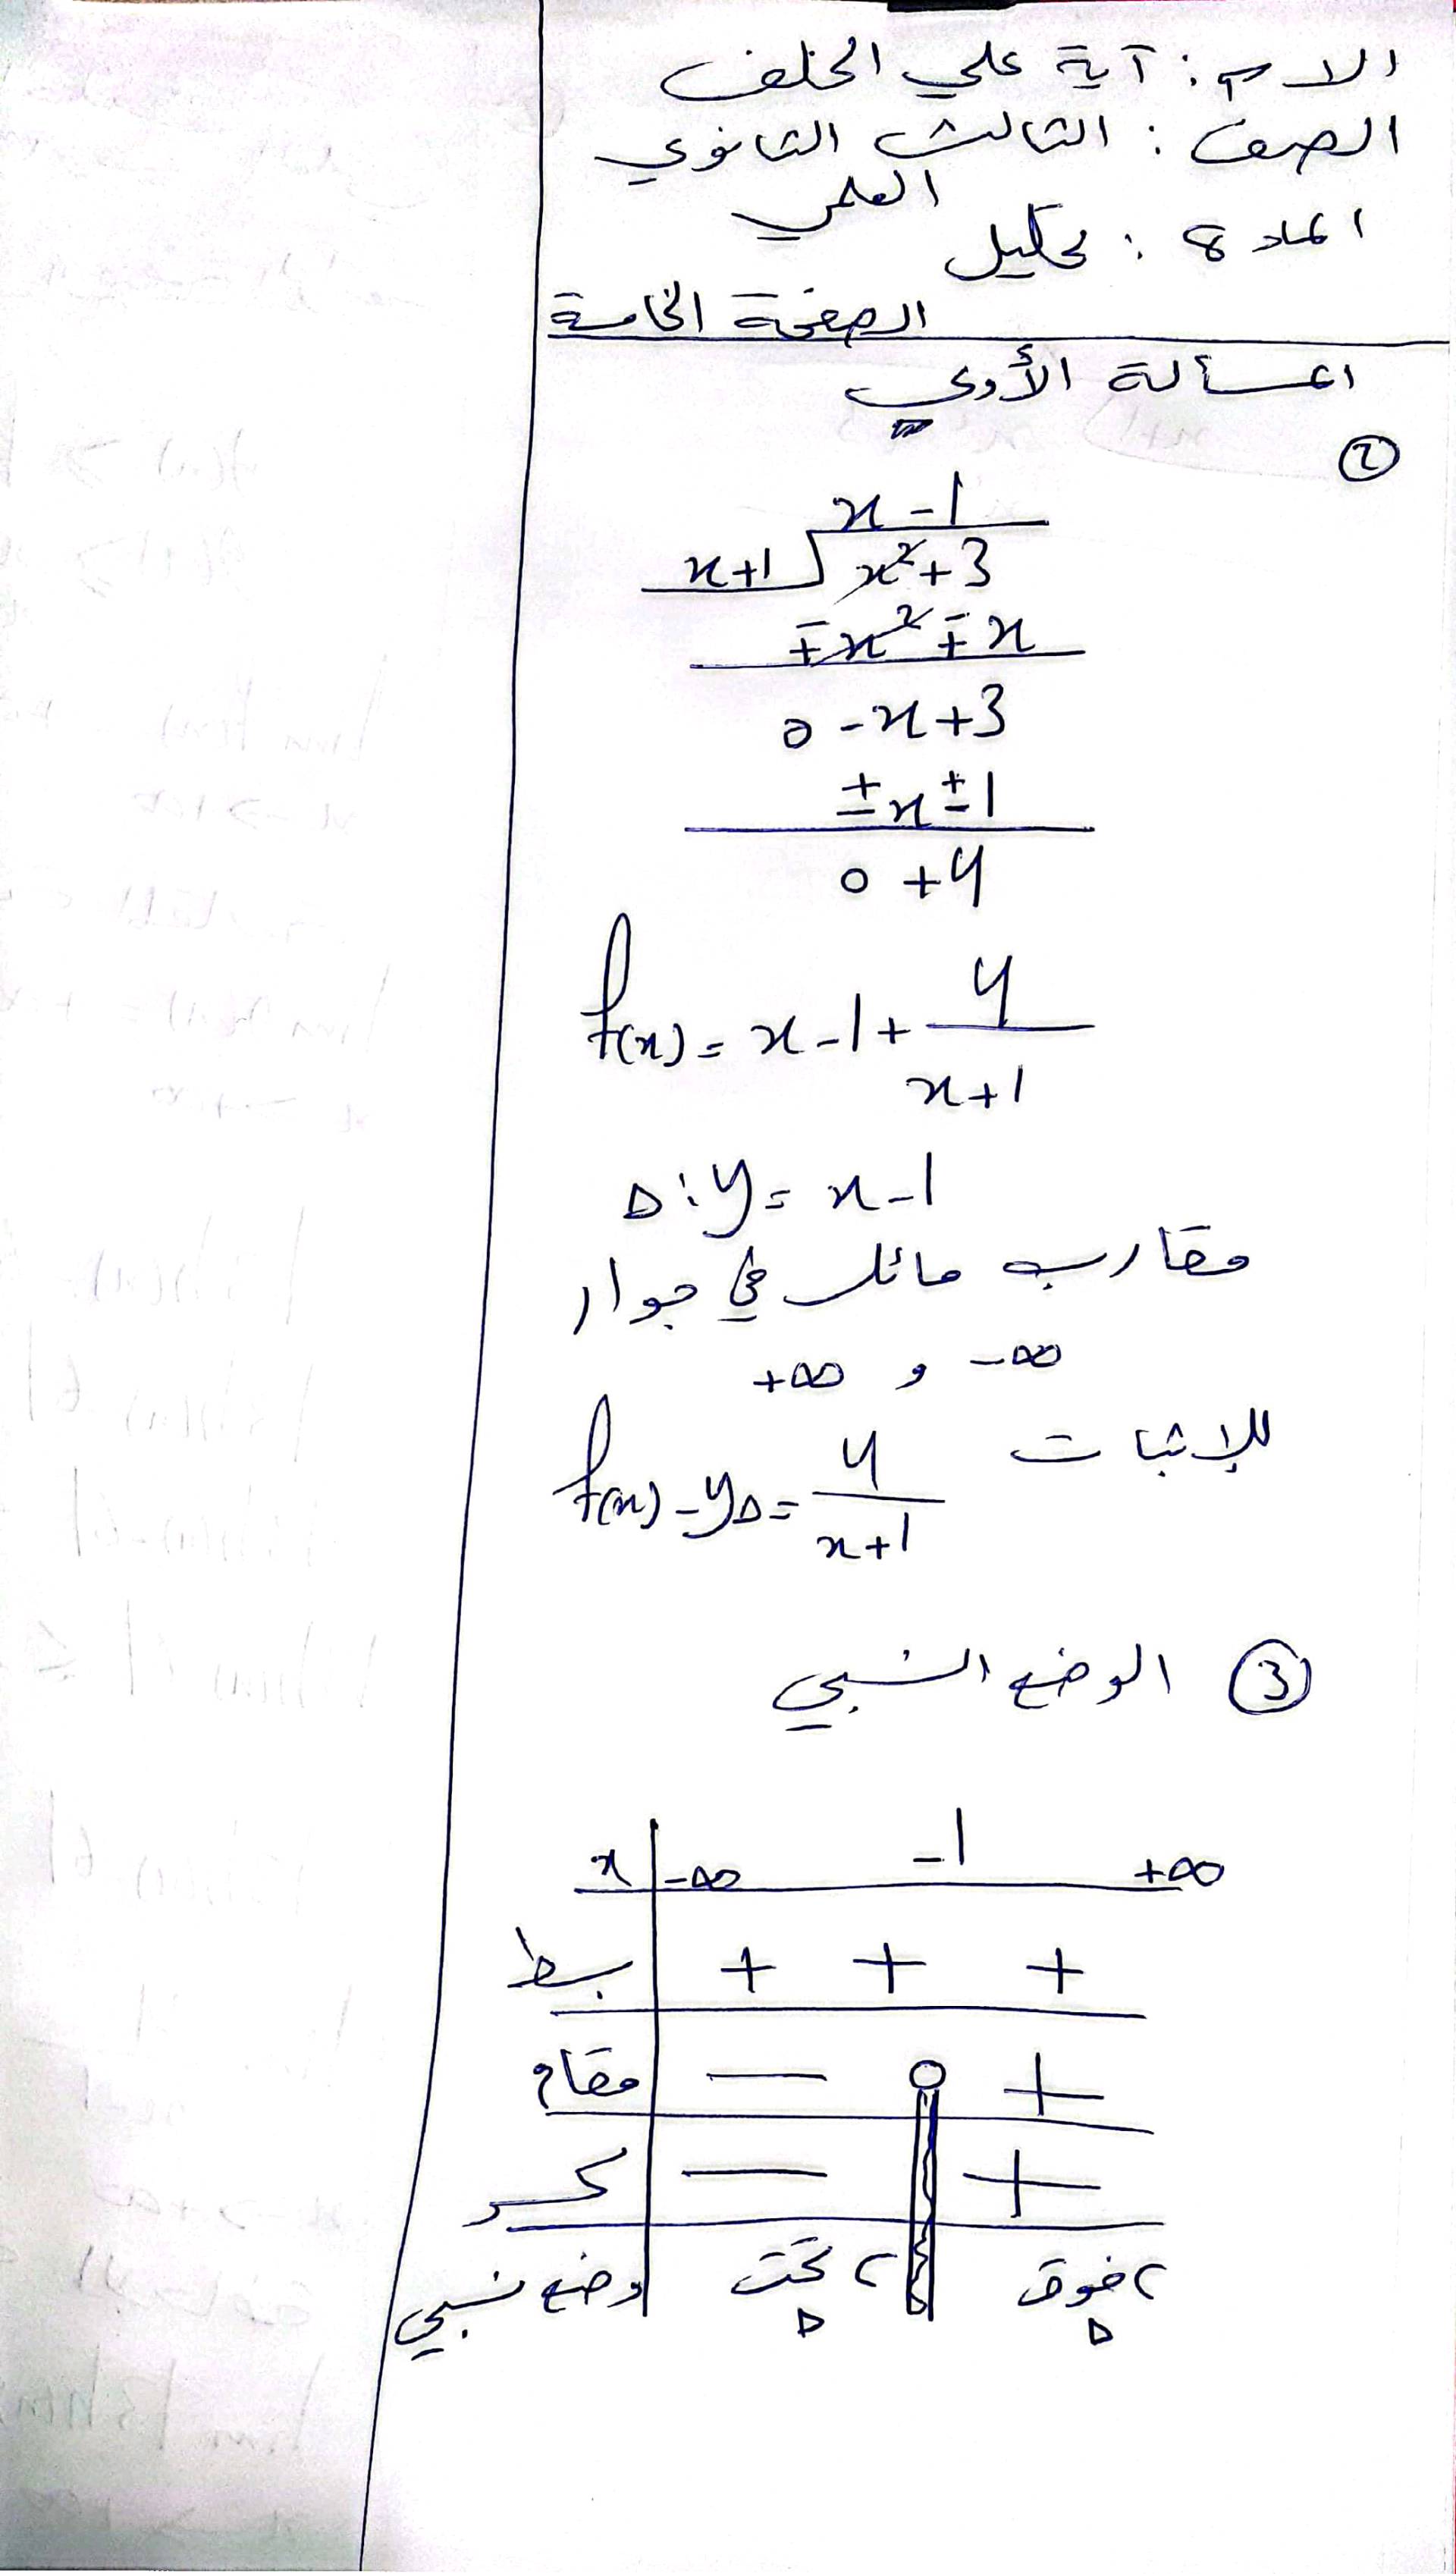 الاسم : آية علي الخلف
الصف : الثالث الثانوي
العلمي
المادة : تحليل
الصفحة الخامسة
المسألة الأولى
②
x - 1
x+1 x² + 3
∓x² ∓ x
0 - x + 3
± x ± 1
0 + 4
f(x) = x - 1 + 4/(x+1)
Δ : y = x - 1
مقارب مائل في جوار
+∞ و -∞
للإثبات
f(x) - yΔ = 4/(x+1)
③ الوضع النسبي
x -∞ -1 +∞
بسط + + +
مقام — 0 +
كسر — +
وضع نسبي C تحت Δ C فوق Δ